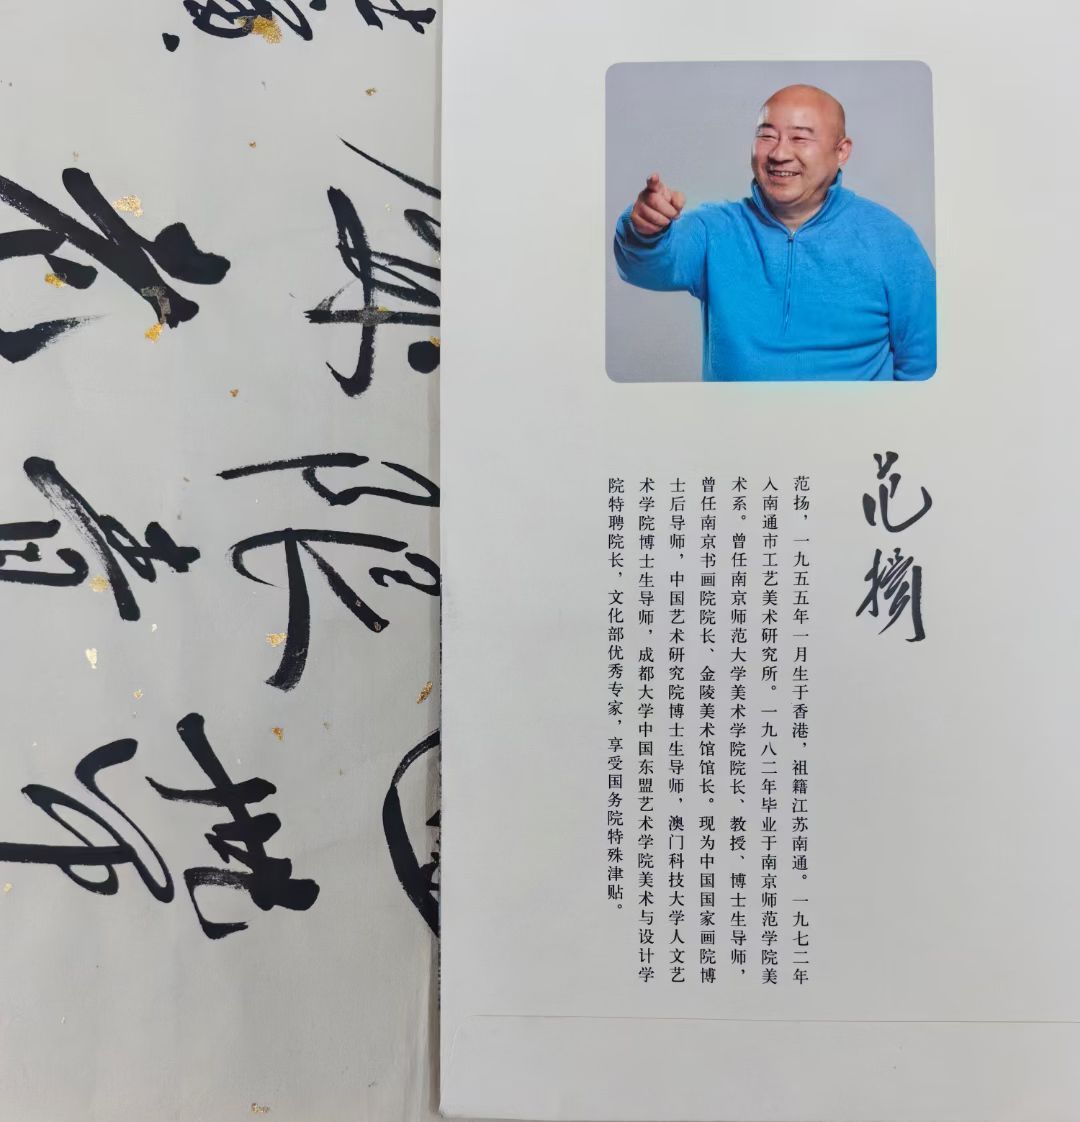 范扬
范扬，一九五五年一月生于香港，祖籍江苏南通。一九七二年
入南通市工艺美术研究所。一九八二年毕业于南京师范学院美
术系。曾任南京师范大学美术学院院长、教授、博士生导师，
曾任南京书画院院长、金陵美术馆馆长。现为中国国家画院博
士后导师，中国艺术研究院博士生导师，澳门科技大学人文艺
术学院博士生导师，成都大学中国东盟艺术学院美术与设计学
院特聘院长，文化部优秀专家，享受国务院特殊津贴。